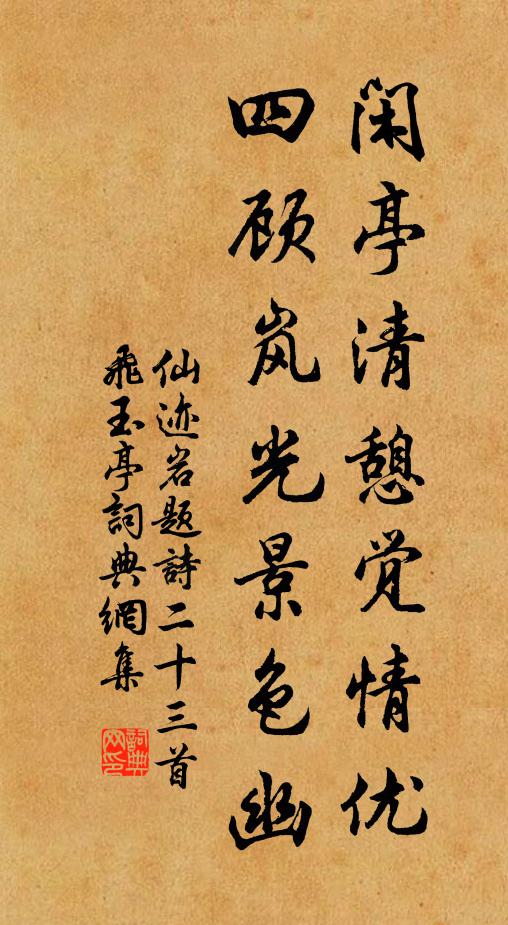 闲亭清憩觉情优
四顾岚光景色幽
仙迹岩题詩二十三首
飛玉亭詞典網集
詞典网印